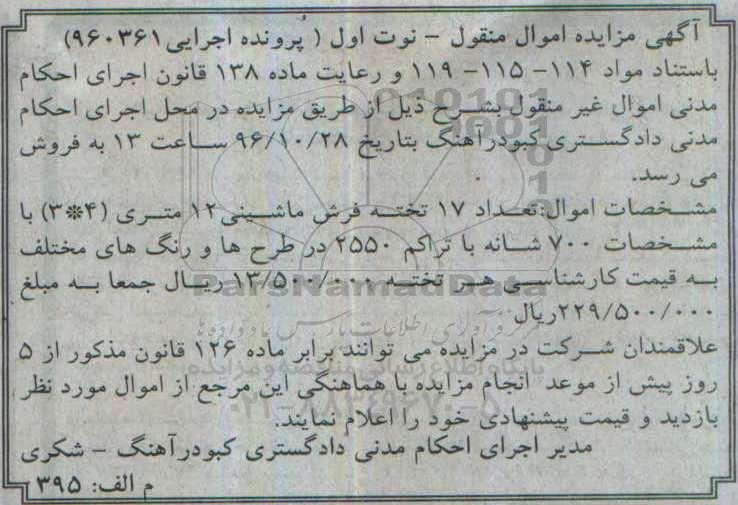 آگهی مزایده اموال منقول - نوت اول ( پرونده اجرایی ۹۶۰۳۶۱)
باستناد مواد ۱۱۴- ۱۱۵- ۱۱۹ و رعایت ماده ۱۳۸ قانون اجرای احکام
مدنی اموال غیر منقول بشرح ذیل از طریق مزایده در محل اجرای احکام
مدنی دادگستری کبودرآهنگ بتاریخ ۹۶/۱۰/۲۸ ساعت ۱۳ به فروش
می رسد.
مشخصات اموال:تعداد ۱۷ تخته فرش ماشینی۱۲ متری (۴*۳) با
مشخصات ۷۰۰ شانه با تراکم ۲۵۵۰ در طرح ها و رنگ های مختلف
به قیمت کارشناسی هر تخته ۱۳/۵۰۰/۰۰۰ ریال جمعا به مبلغ
ParsNamadData
۲۲۹/۵۰۰/۰۰۰ریال
علاقمندان شرکت در مزایده می توانند برابر ماده ۱۲۶ قانون مذکور از ۵
پایگاه اطلاع رسانی مناقصه و مزایده
روز پیش از موعد انجام مزایده با هماهنگی این مرجع از اموال مورد نظر
۰۲۱-۸۸۳۴۹۶۷۰-۵
بازدید و قیمت پیشنهادی خود را اعلام نمایند.
مدیر اجرای احکام مدنی دادگستری کبودرآهنگ - شکری
م الف: ۳۹۵